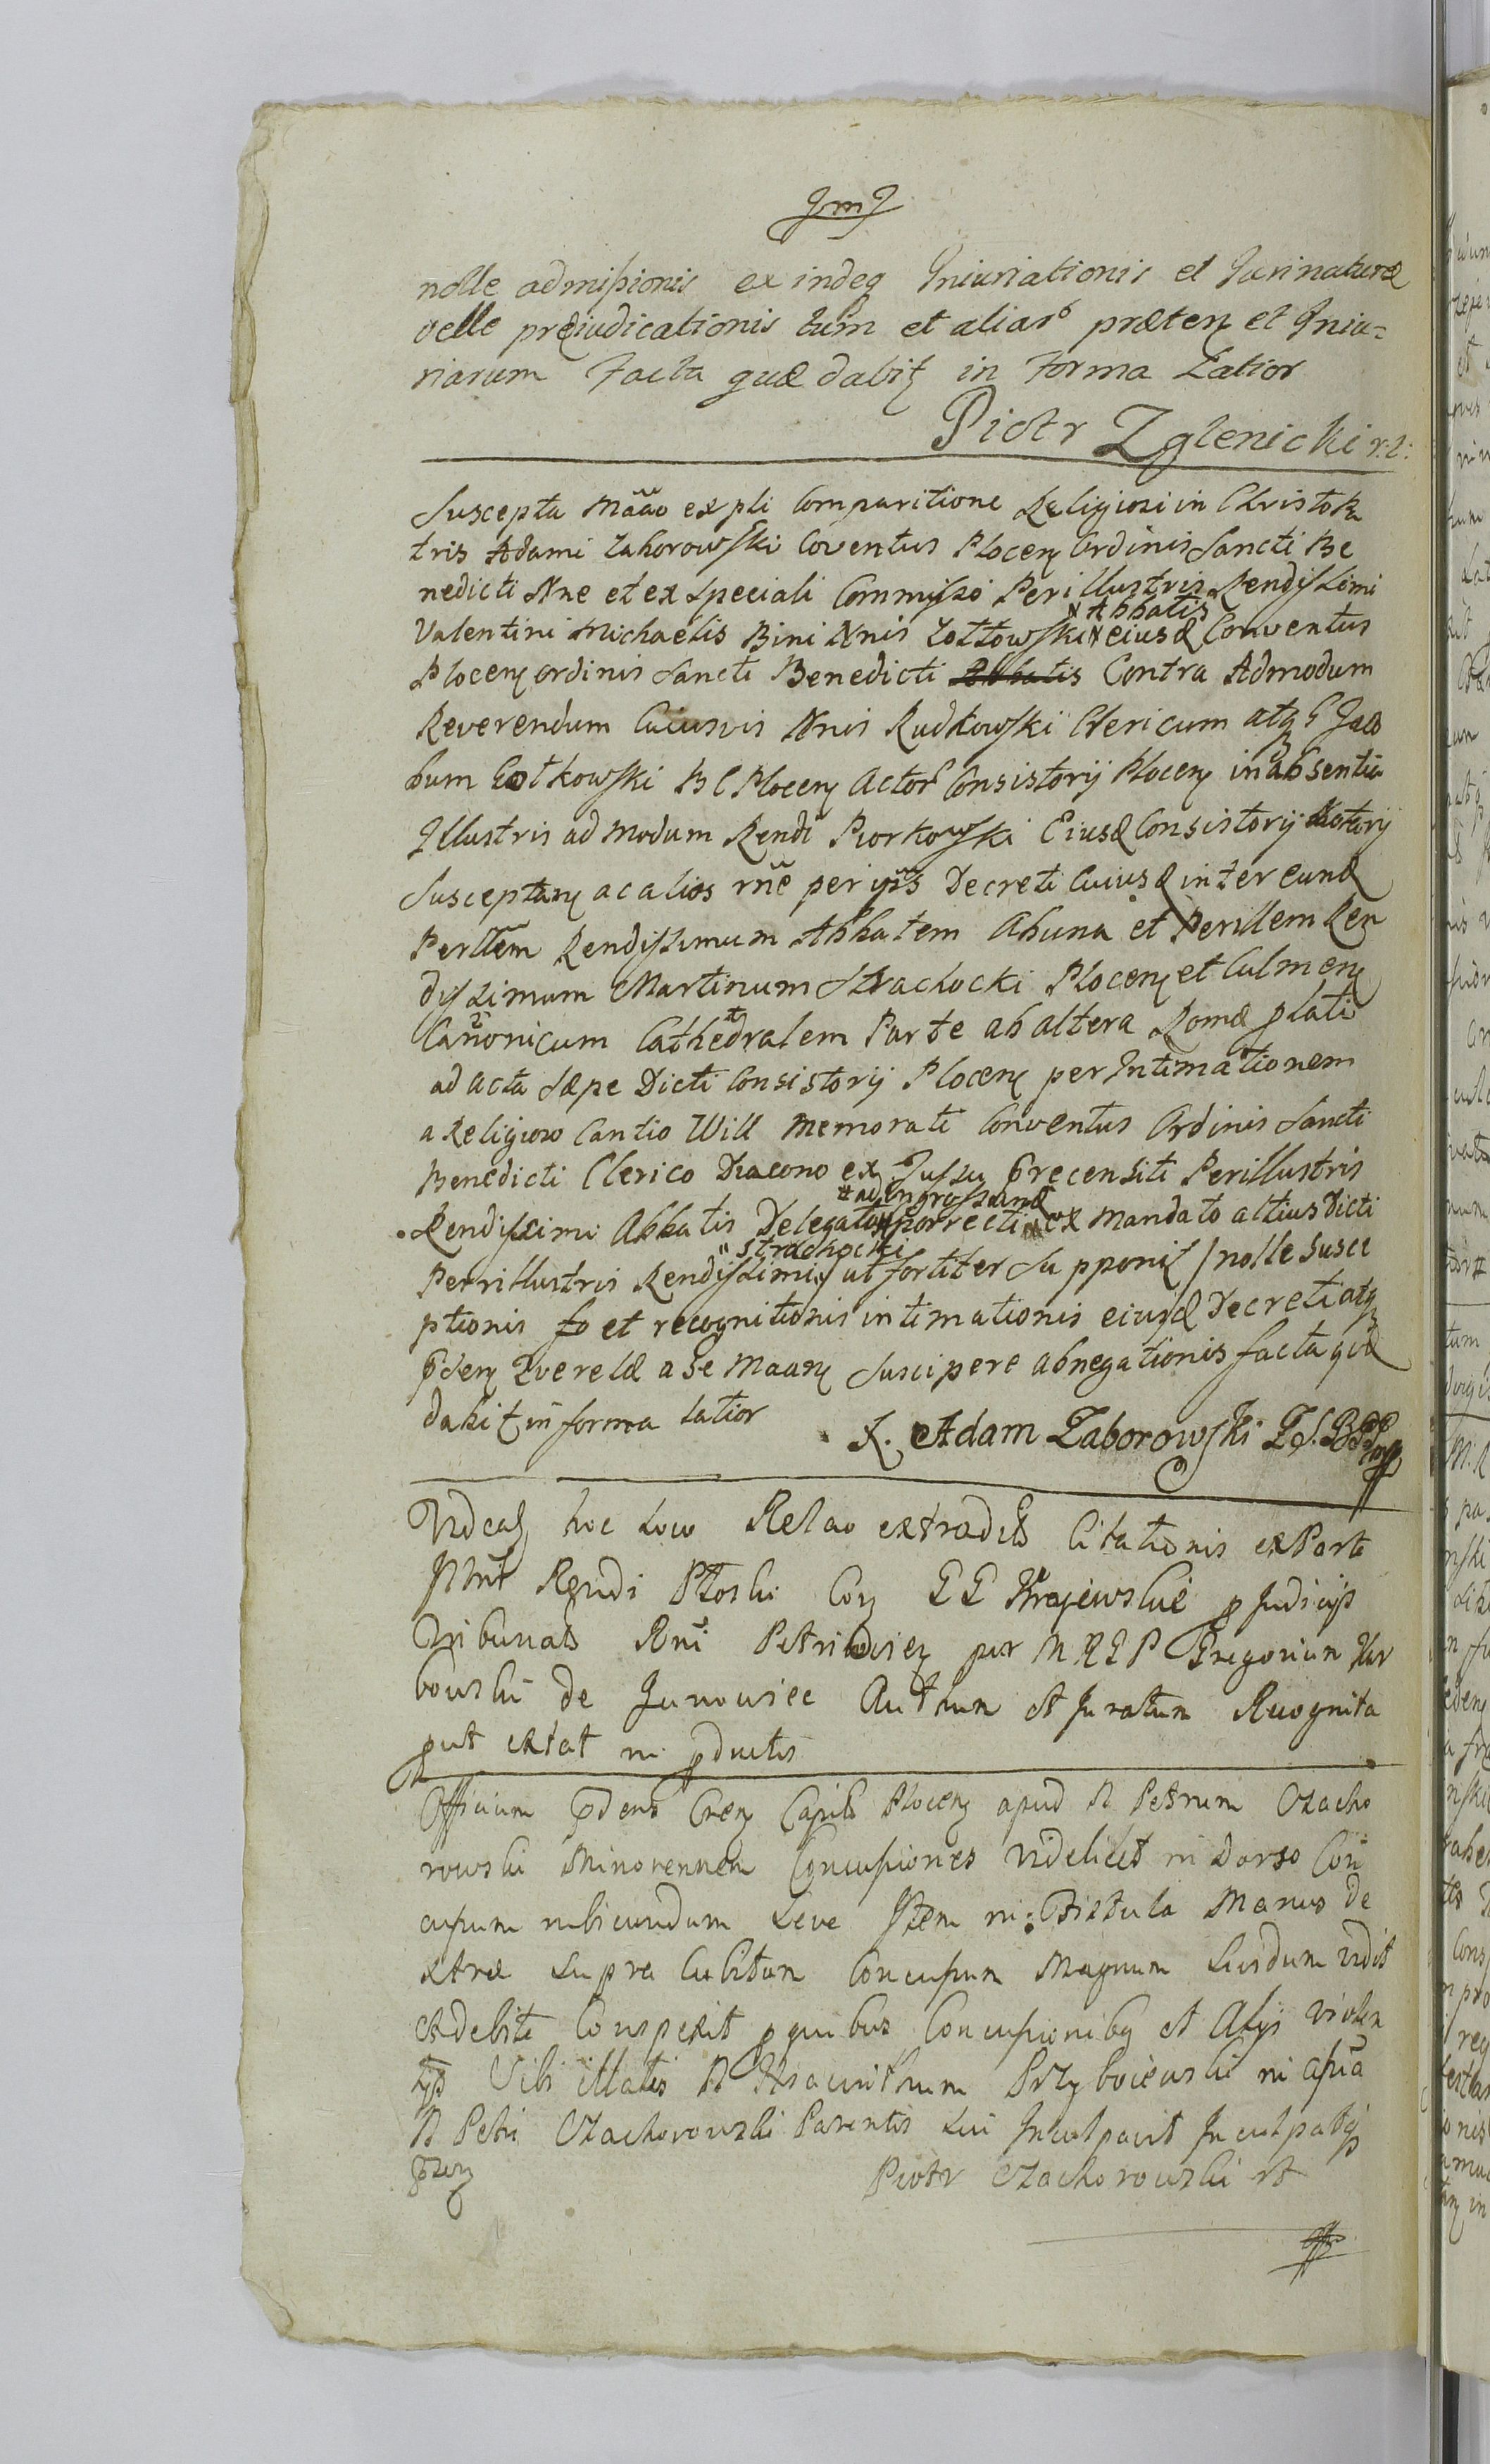 JmJ
nolle admissionis ex indeq Iniuriationis et Iurinaturæ
velle preiudicationis tum et aliar præten et Iniu=
riarum facta quæ dabit in forma Latior
Piotr Zglenicki r:l:
Suscepta Māāo ex pli Comparitione Religiosi in Christo Pa
tris Adami Zaborowski Coventus Plocen Ordinis Sancti Be
nedicti Nne et ex Speciali Commisso Perillustris Rendissimi
Valentini Michaelis Bini Nnis Zołtowski Abbatis eiusd Conventus
Plocen ordinis Sancti Benedicti Abbatis Contra Admodum
Reverendum Cuiusvis Nnis Rudkowski Clericum atq G Jaco
bum Gotkowski B C Plocen Actor Consistorij Plocen in absentia
Illustris ad modum Rendi Piorkowski Eiusd Consistorij Notarij
Susceptam ac alios rñe per ipss Decreti Cuiusd inter eund
Perllem Rendissimum Abbatem Ab una et Perillem Ren
dissimum Martinum Strachocki Plocen et Culmen
Canonicum Cathedralem Parte ab altera Romæ plati
ad acta Sæpe Dicti Consistorij Plocen per Intimationem
a Religioso Cantio Will memorati Conventus Ordinis Sancti
Benedicti Clerico Diacono ex Jussu precensiti Perillustris
Rendissimi Abbatis Delegato ad Ingrossand porrecti ex Mandato altius Dicti
Perrillustris Rendissimi Strachocki ut fortiter Supponit / nolle Susce
ptionis fo et recognitionis intimationis eiusd Decreti atq
pden Querelæ a Se Maan Suscipere abnegationis facta quæ
dabit in forma latior X. Adam Zaborowski Z.S.B.
Videat hoc Loco Relao extradit Citationis ex Parte
Rendi Ploski Con GG Krajewskie p Judicijs
Tribunals Rni Petricovien per M R G P Gregorium Kar
bowski de Janowiec Authen et Juratum Recognita
put extat in pductis
Officium pdens Cren Caplis Plocen apud N Petrum Czacho
rowski Minorennem Concussiones Videlicet in Dorso Con
cussum rubicundum Leve Item in Fistula Manus de
xtræ Supra Cubitum Concussum Magnum Lividum vidit
et debite Conspexit p quibus Concussionibq et Alijs violen
tijs Sibi illatis N Hiacinthum Przyboiewski in apna
N Petri Czachorowski Parentis Sui Inculpavit Inculpatq
pzen Piotr Czachorowski